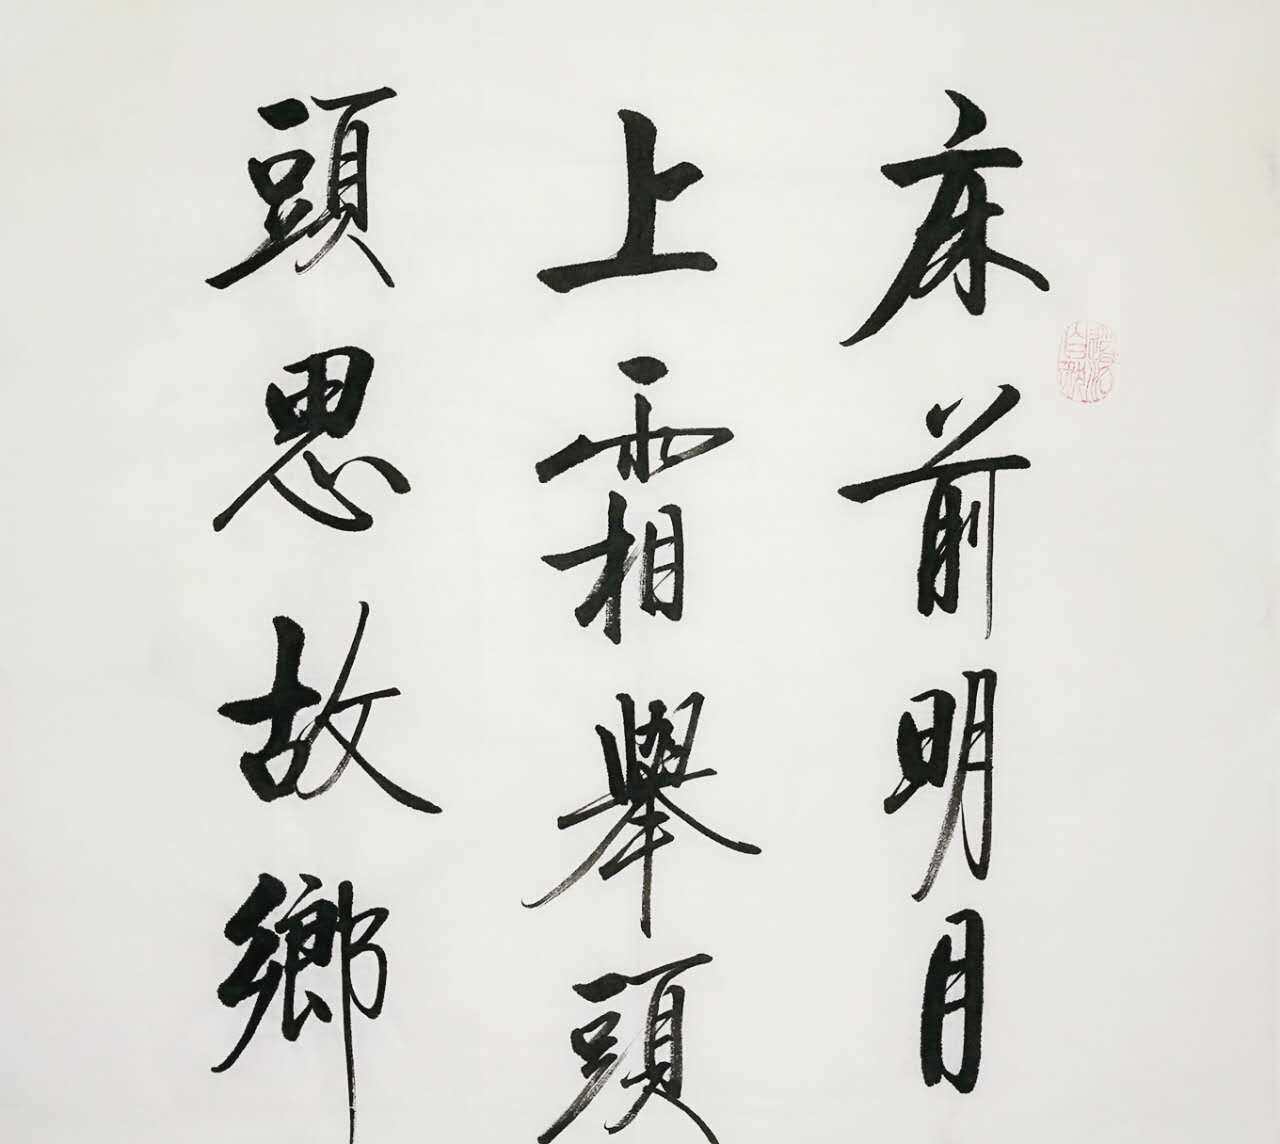 床前明月
上霜舉頭
頭思故鄉